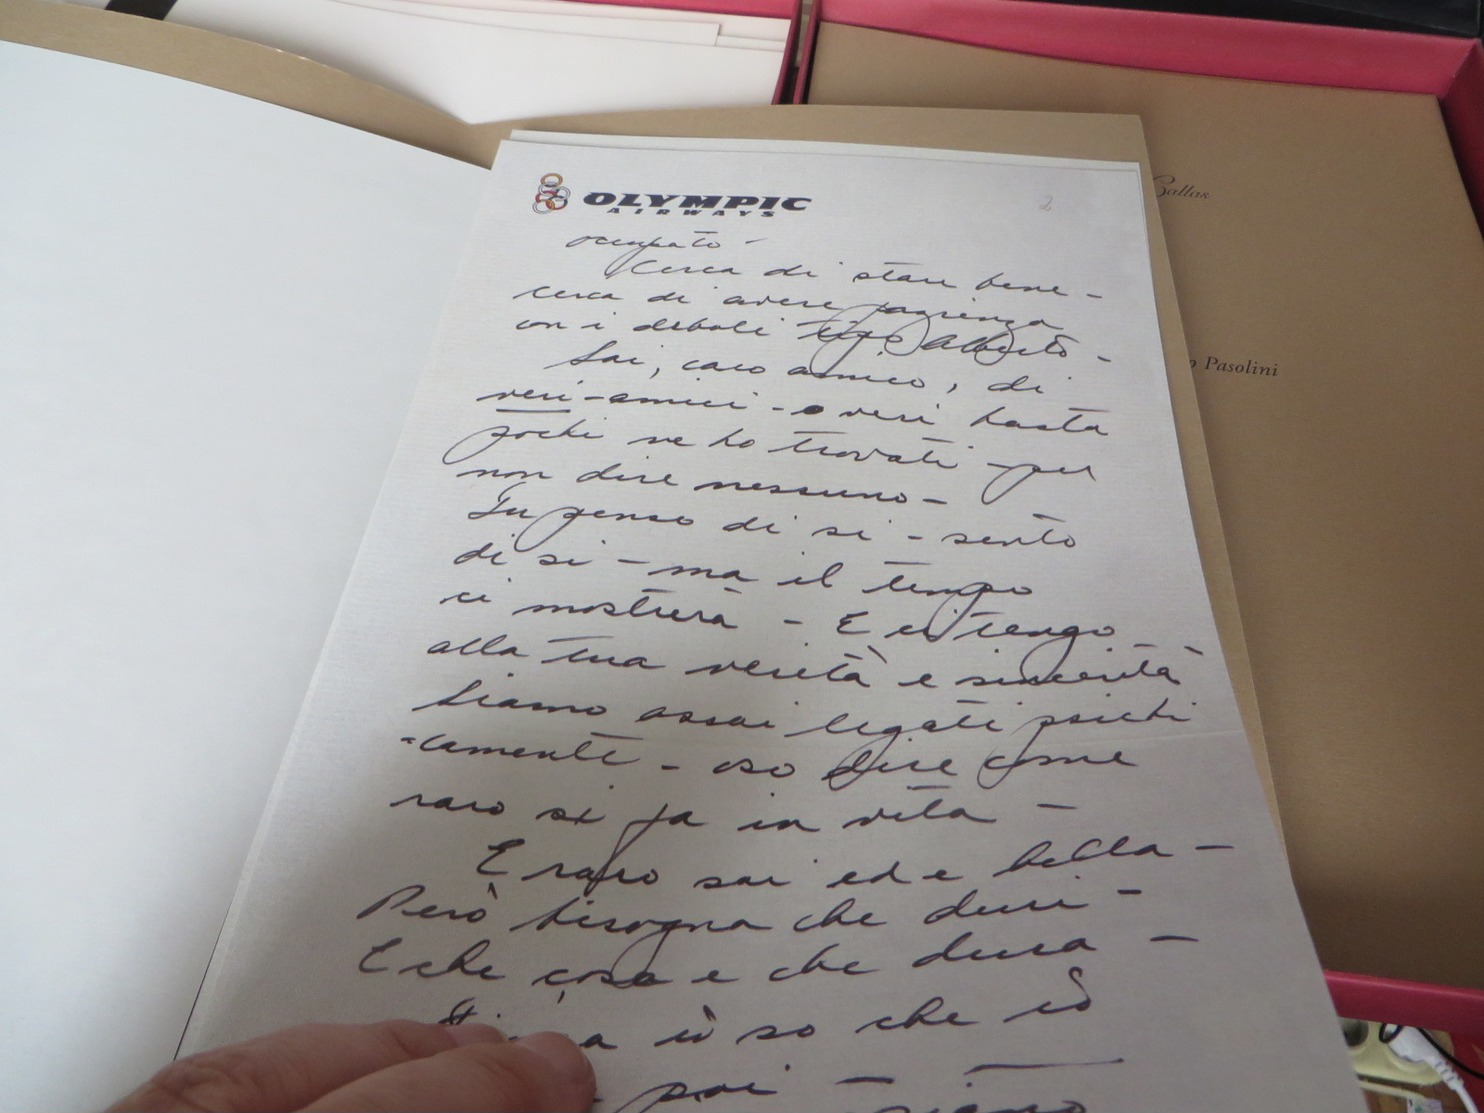 OLYMPIC
AIRWAYS
2
occupato -
Cerca di stare bene -
cerca di avere pazienza
con i deboli tipo Alberto -
Sai, caro amico, di
veri - amici - o veri basta
pochi ne ho trovati - per
non dire nessuno -
Tu penso di si - sento
di si - ma il tempo
ci mostrerà - E ci tengo
alla tua verità e sincerità
Siamo assai legati psichi
-camente - oso dire come
raro si fa in vita -
E raro sai ed e bella -
Però bisogna che duri -
E che cosa e che dura -
io so che io
poi -
Callas
Pasolini